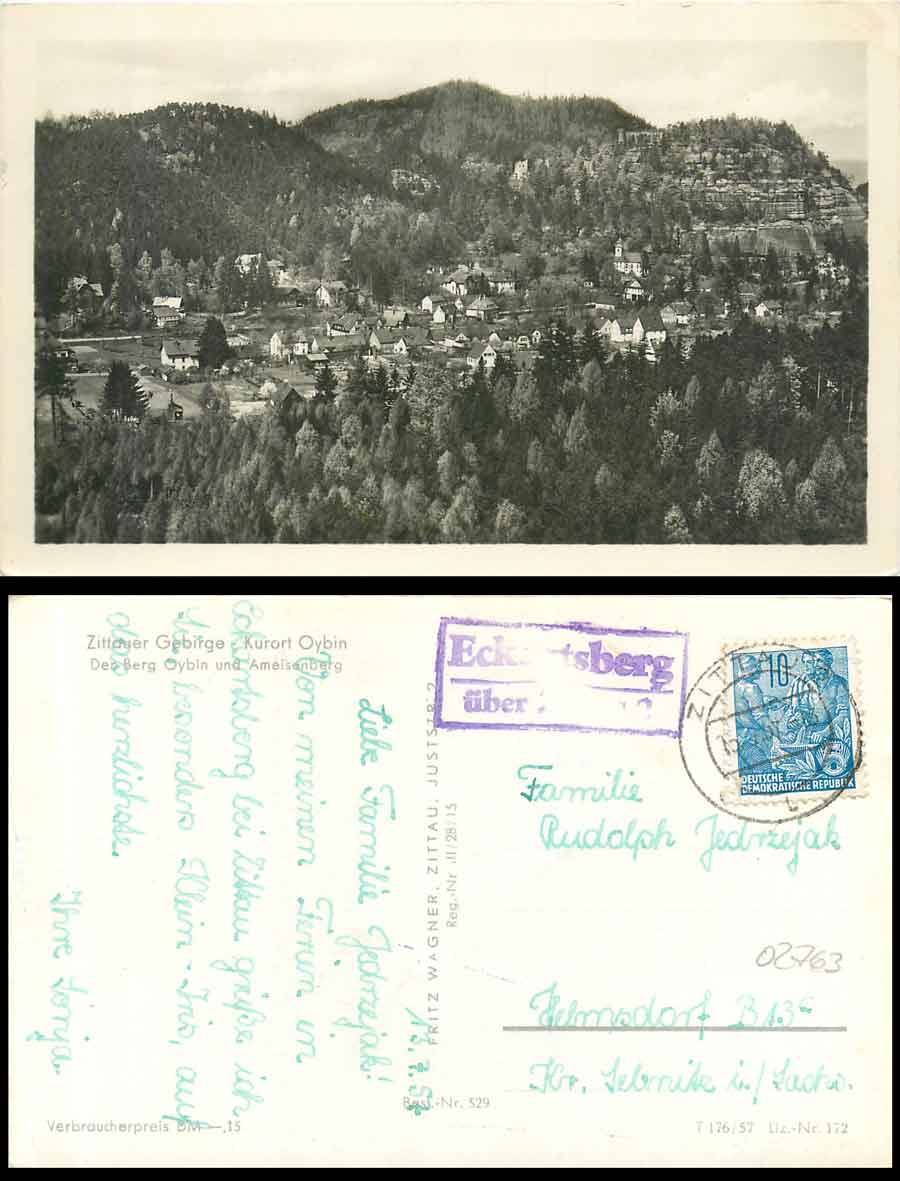 Zittauer Gebirge · Kurort Oybin
Der Berg Oybin und Ameisenberg
13. 7. 57
Liebe Familie Jedrzejak!
Von meinen Ferien in
Eckartsberg bei Zittau grüße ich
Sie besonders Klein-Iris, auf
das herzlichste.
Ihre Sonja.
Verbraucherpreis DM —,15
Best.-Nr. 529
FRITZ WAGNER, ZITTAU, JUSTSTR. 2
Reg.-Nr. II/28/15
Eckartsberg
über
ZITTAU
10
DEUTSCHE
DEMOKRATISCHE REPUBLIK
Familie
Rudolph Jedrzejak
02763
Helmsdorf B 13c
Kr. Sebnitz i./Sachs.
T 176/57 Liz.-Nr. 172